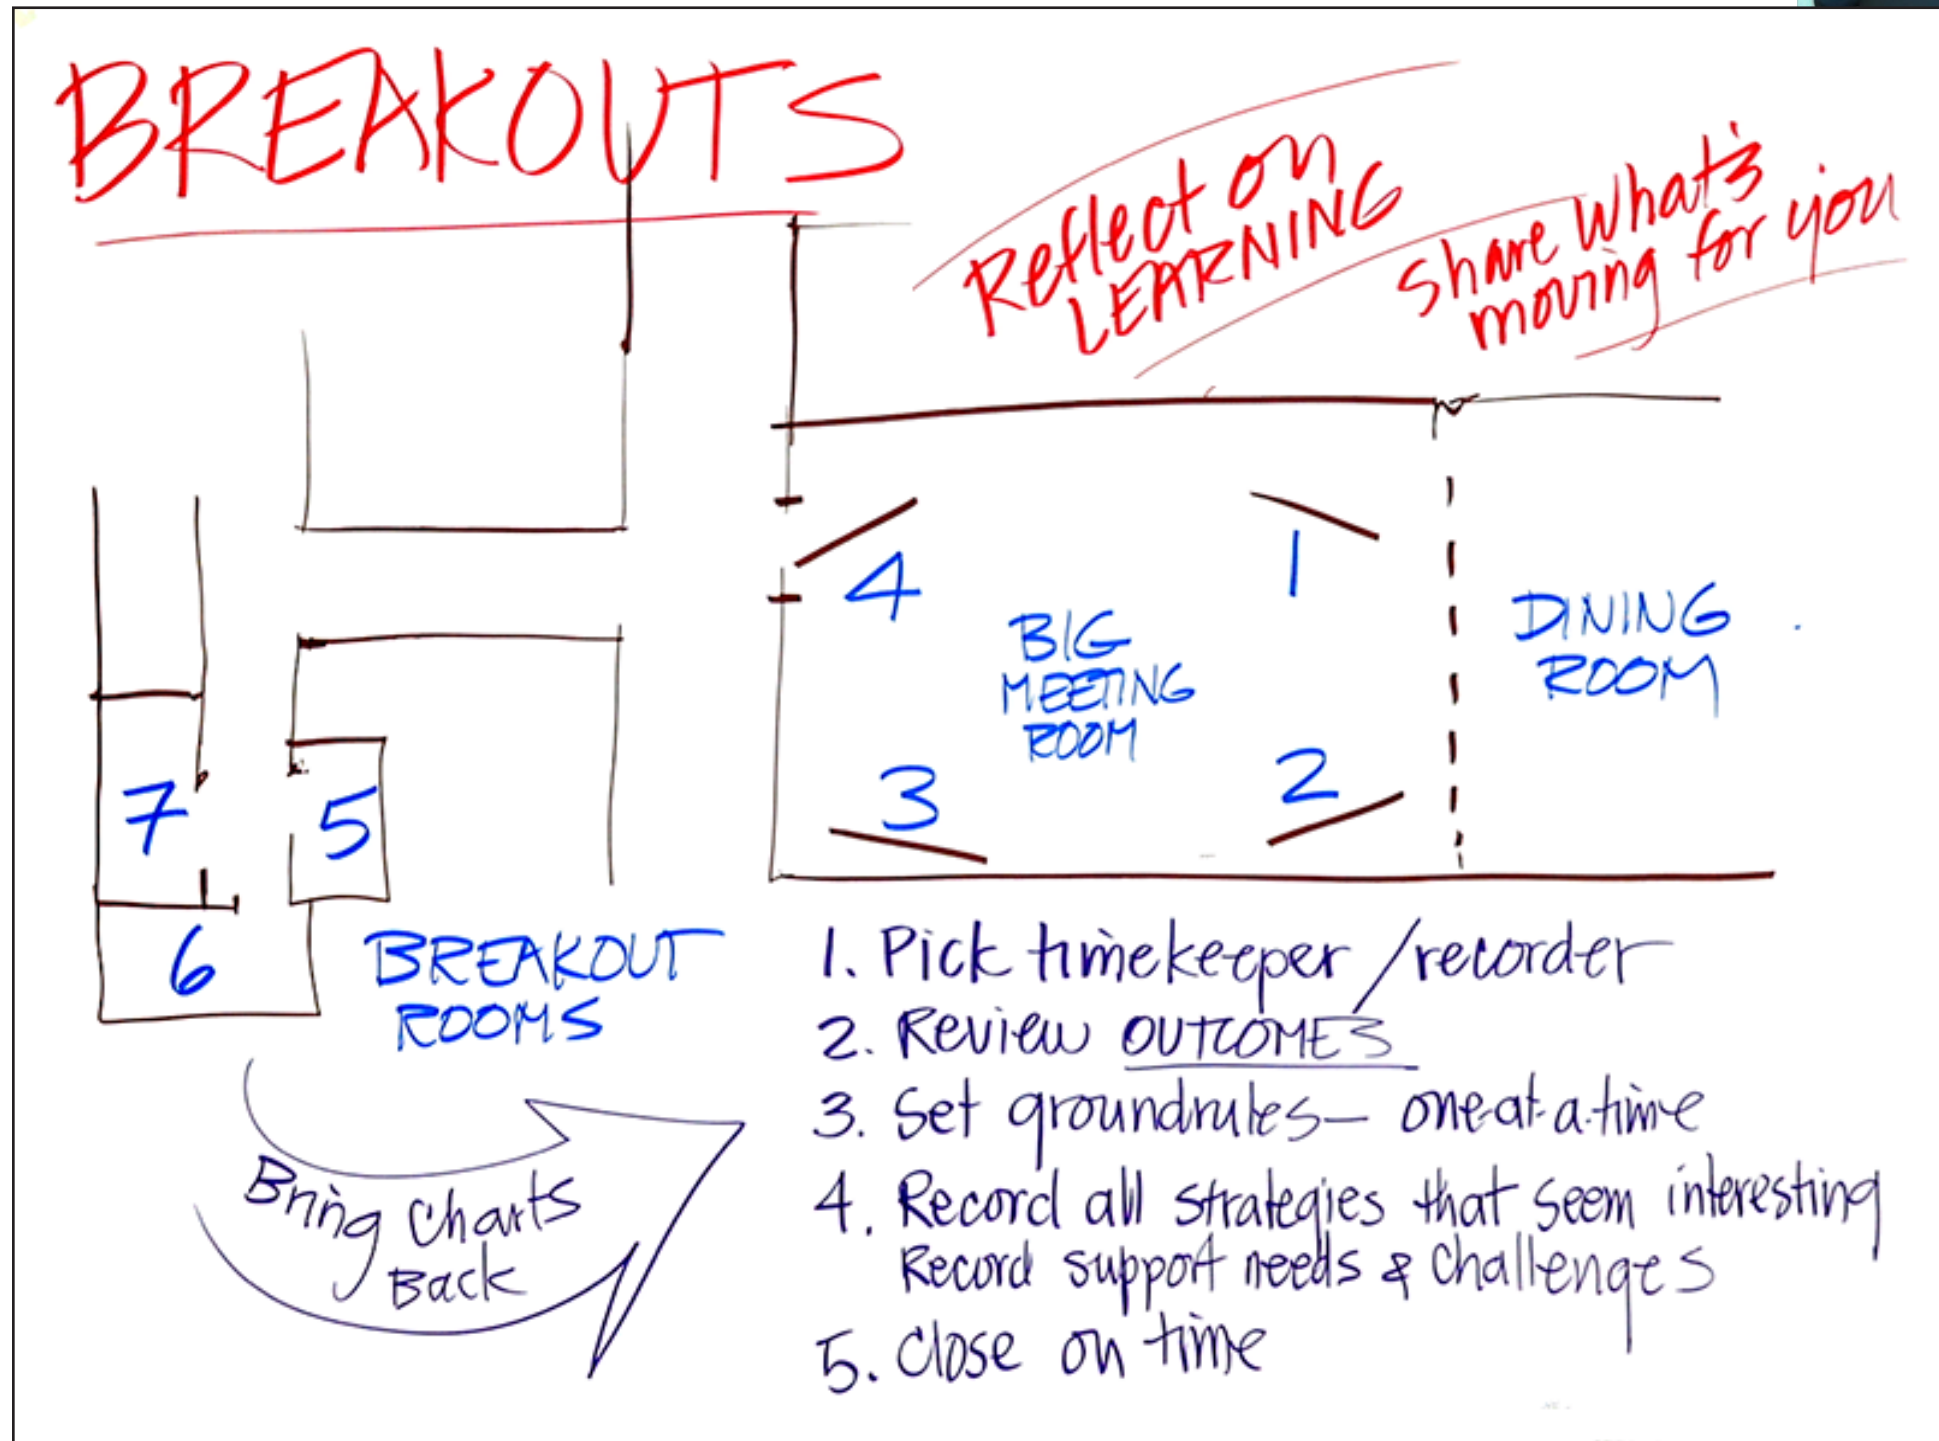 BREAKOUTS
Reflect on
LEARNING
Share what's
moving for you
4
1
BIG
MEETING
ROOM
DINING
ROOM
3
2
7
5
6
BREAKOUT
ROOMS
Bring Charts
Back
1. Pick timekeeper/recorder
2. Review OUTCOMES
3. Set groundrules— one-at-a-time
4. Record all strategies that seem interesting
Record support needs & challenges
5. Close on time